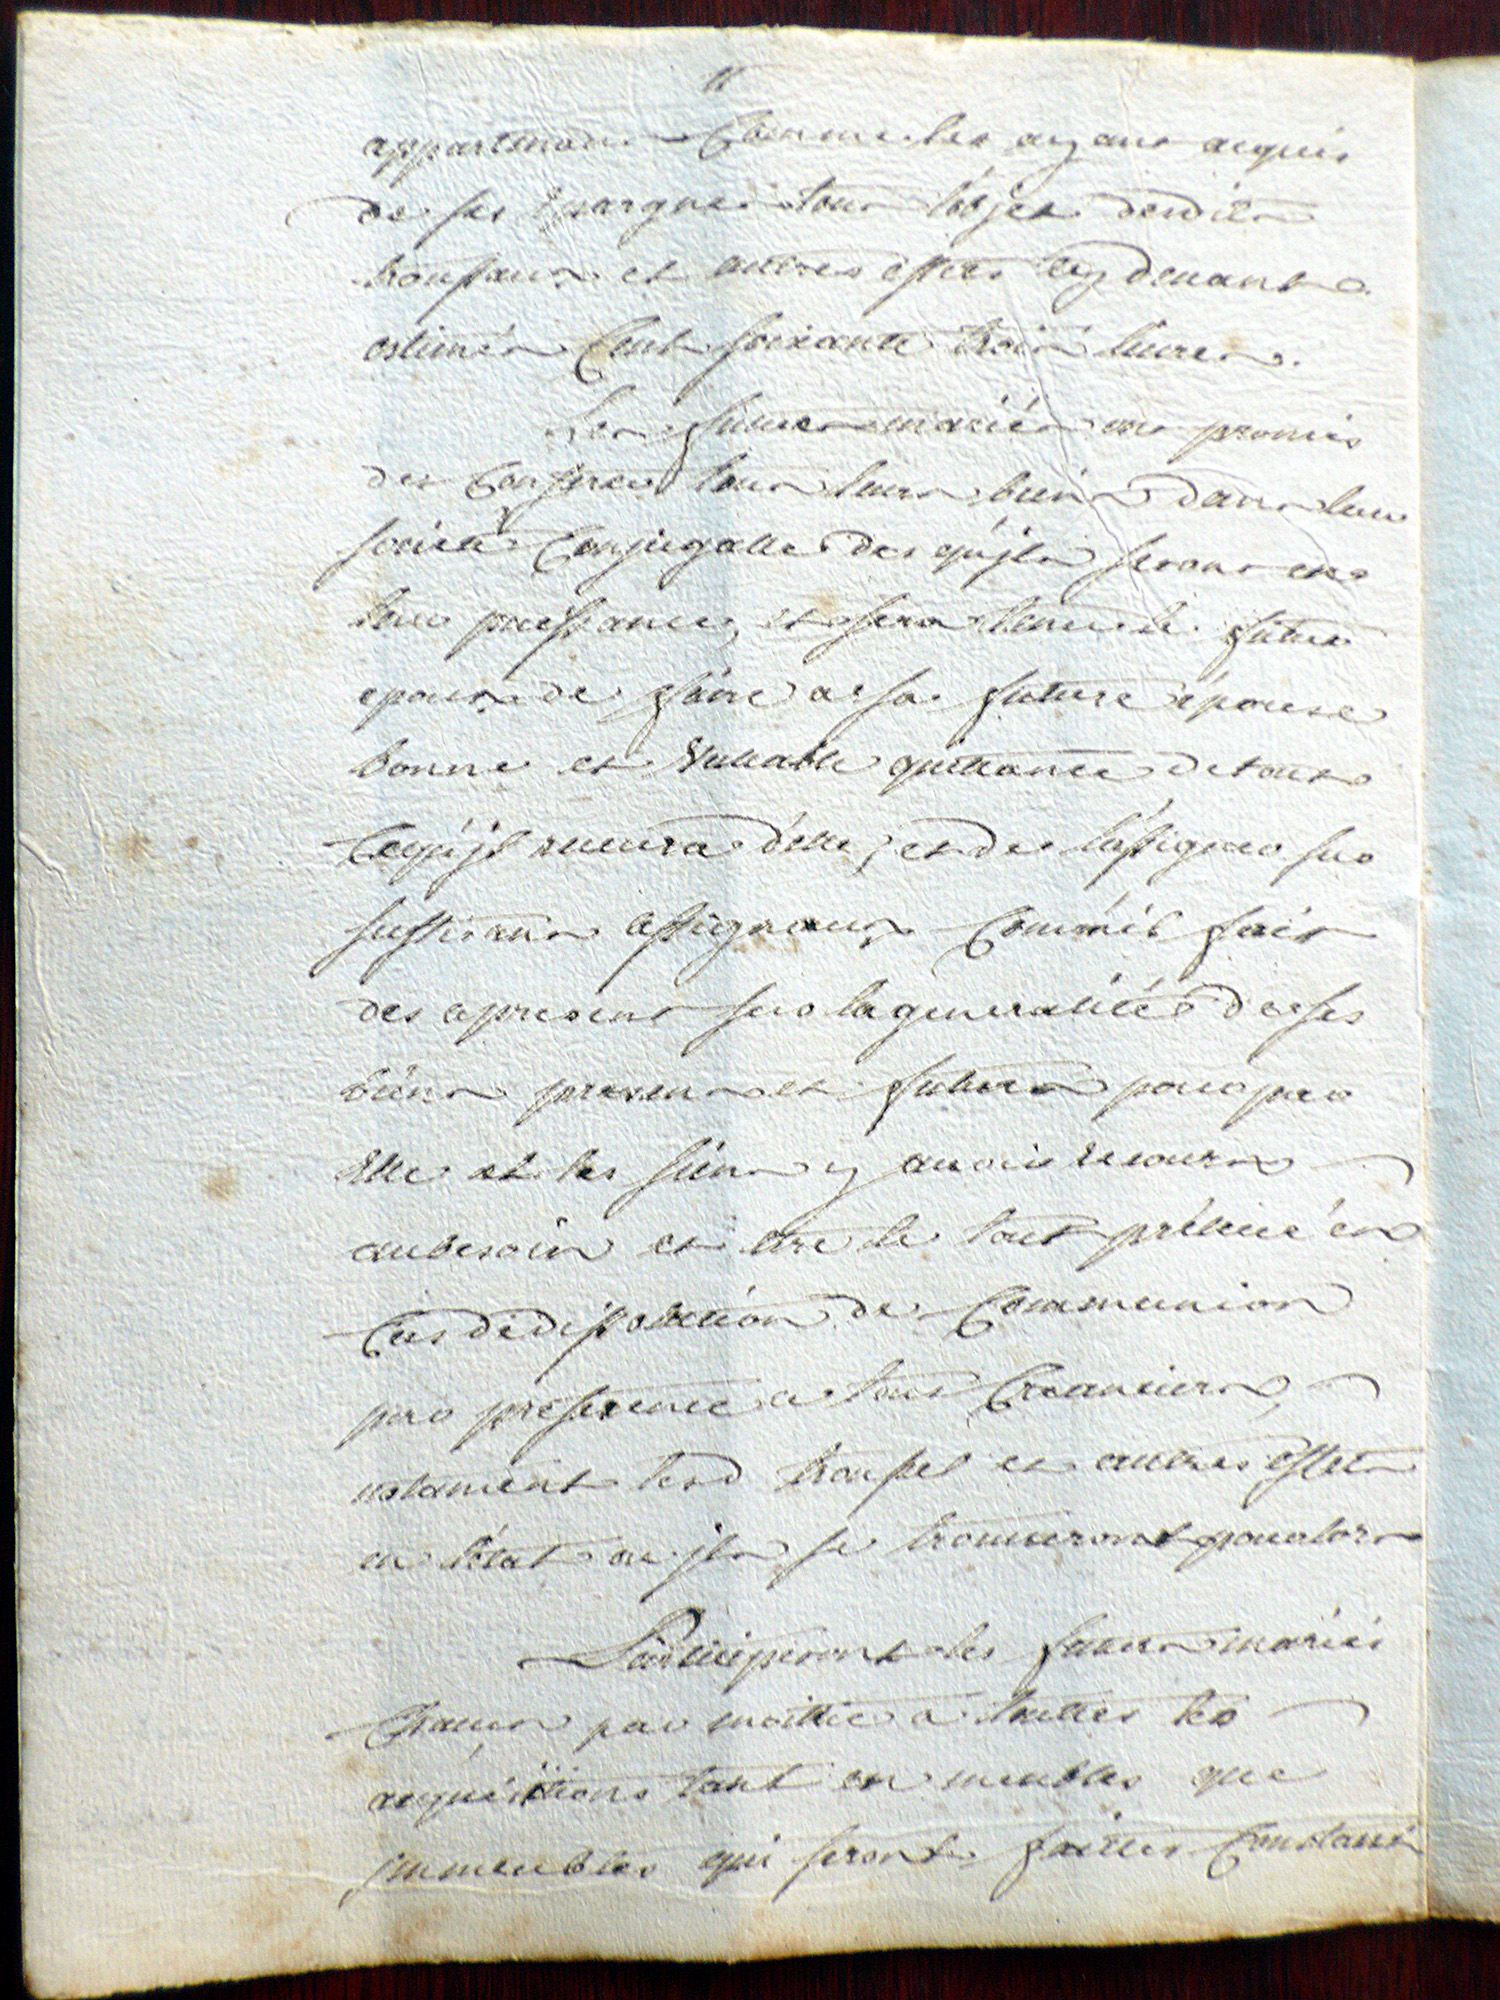 appartenant Comme les ayant acquis
de ses Epargnes tous l'objet desdits
trousseaux et autres effets cy devant
estimés Cent soixante trois livres.
Les futurs mariés ont promis
de Conferer tous leurs biens dans leur
societé Conjugalle des qu'jls seront en
leur puissance, et sera tenu le futur
epoux de faire a sa future épouse
bonne et vallable quittance de tout
Cequ'jl recevra d'elle, et de l'assigner sur
suffisans assignaux Comm'il fait
des apresent sur la generalité de ses
biens presens et futurs pour par
Elle et les siens y avoir recours
au besoin et etre le tout prélevé en
Cas de dissolution de Communion
par preference a tous Creanciers,
notament lesd troussel et autres effets
en l'état ou jls se trouveront pour lors
Participeront les futurs mariés
Chacun par moittié a touttes les
acquisitions tant en meubles que
jmmeubles qui seront faittes Constant